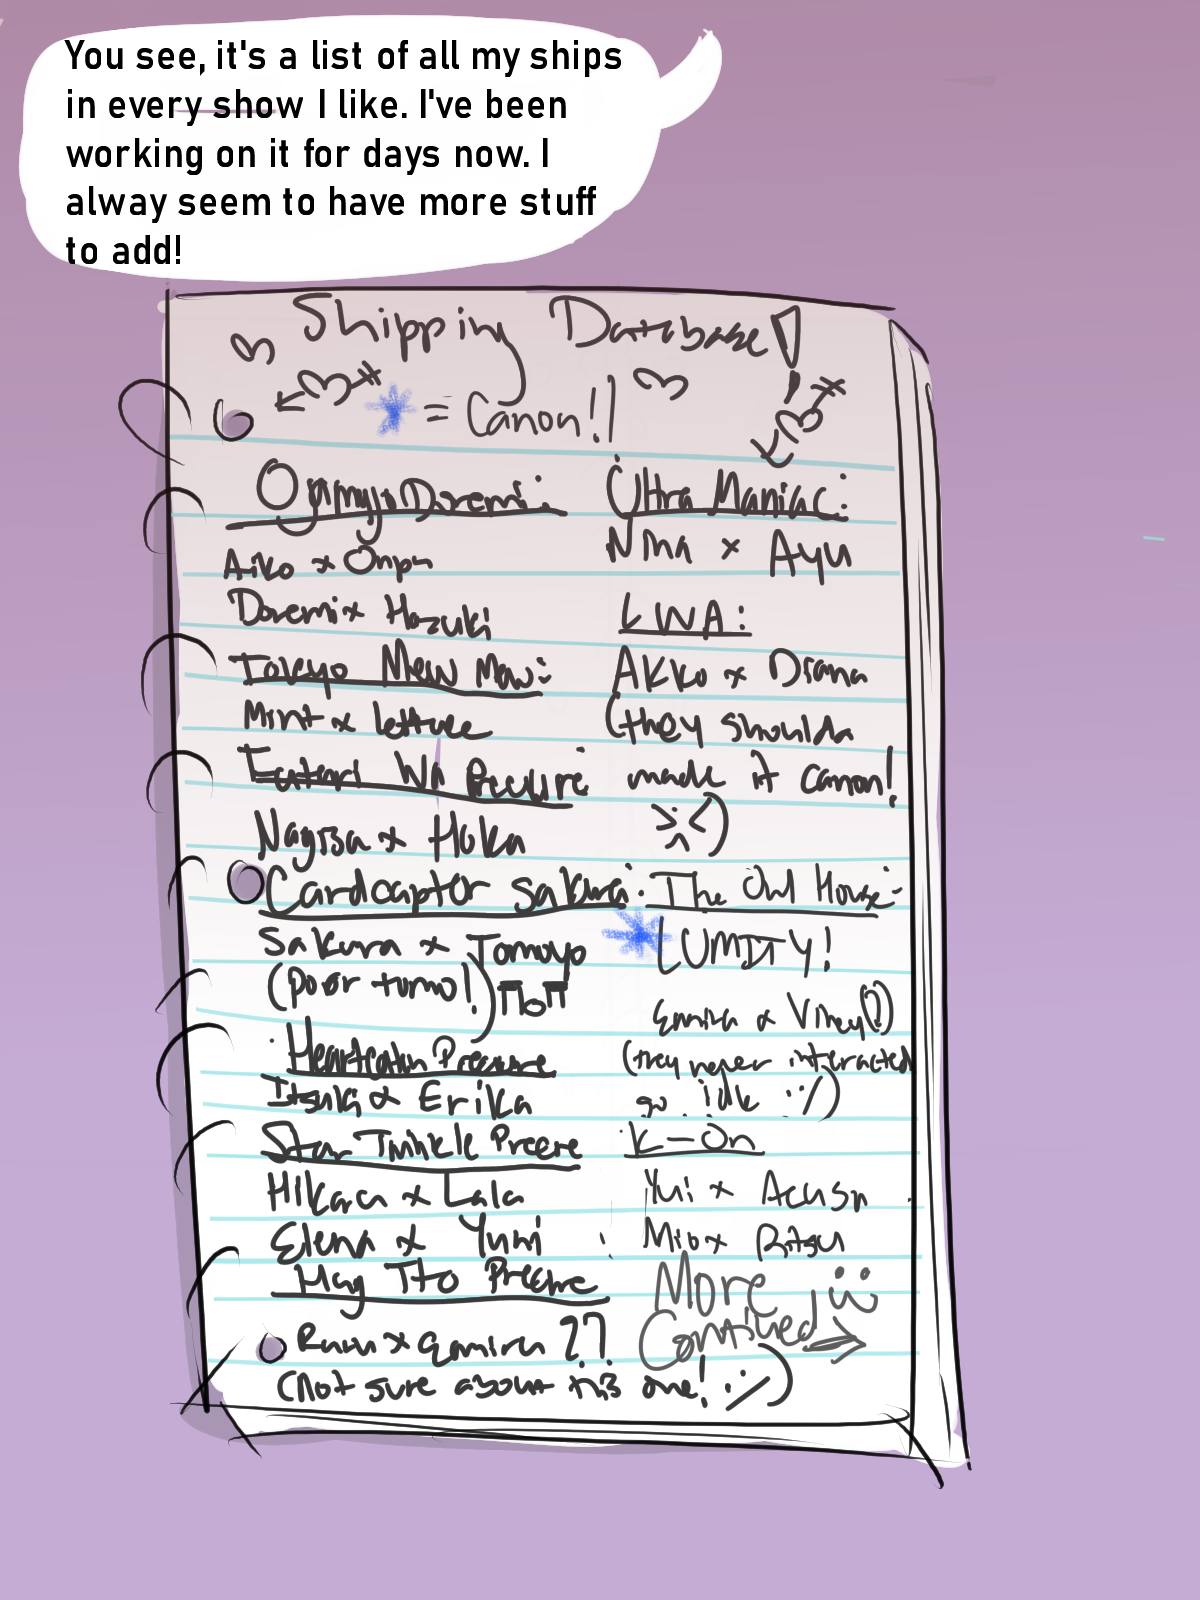 You see, it's a list of all my ships
in every show I like. I've been
working on it for days now. I
alway seem to have more stuff
to add!
Shipping Database!
= Canon!!
Ojamajo Doremi:
Aiko x Onpu
Doremi x Hazuki
Tokyo Mew Mew:
Mint x lettuce
Futari Wa Precure:
Nagisa x Hoka
Cardcaptor Sakura:
Sakura x Tomoyo
(poor tomo!)
Heartcatch Precure
Itsuki x Erika
Star Twinkle Precure
Hikaru x Lala
Elena x Yuni
Hug Precure
(Not sure about this one! :/)
Ultra Maniac:
Nina x Ayu
LWA:
Akko x Diana
(they shoulda
made it canon!
>:<)
The Owl House:
LUMITY!
Emira x Viney(?)
(they never interacted
so idk :/)
K-On
Yui x Azusa
Mio x Ritsu
More
Continued